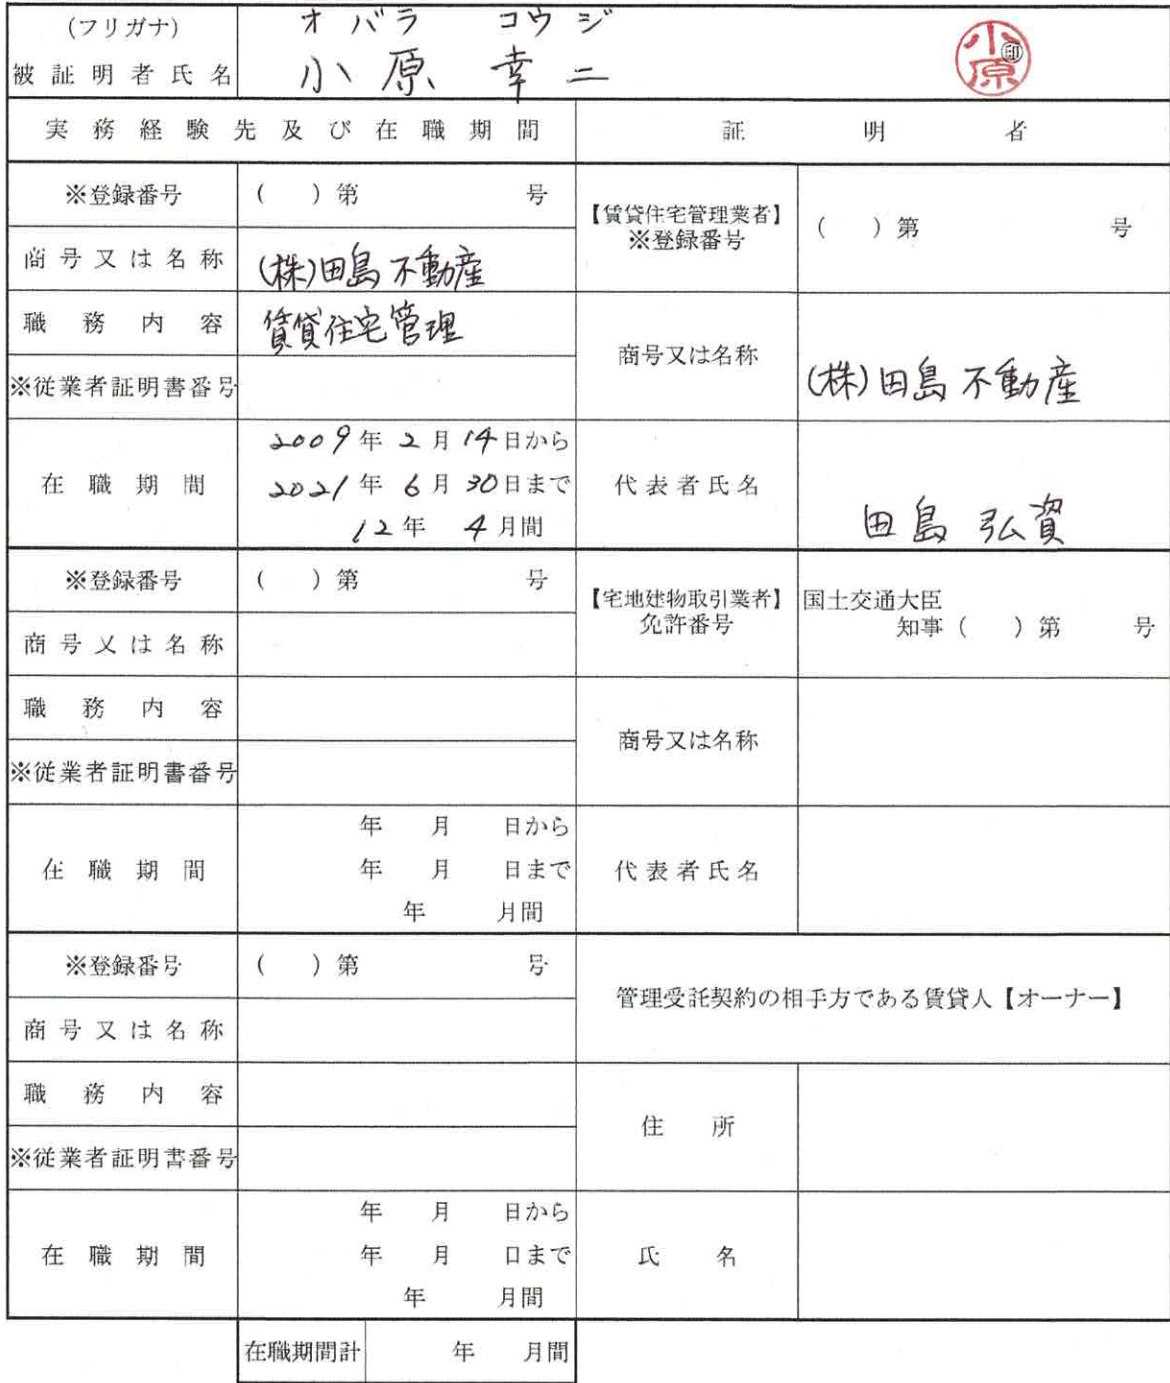 (フリガナ) オバラ コウジ
被証明者氏名 小原 幸二 小原 印
実務経験先及び在職期間 証明者
※登録番号 ( )第 号
【賃貸住宅管理業者】
※登録番号 ( )第 号
商号又は名称 (株)田島不動産
職務内容 賃貸住宅管理
商号又は名称 (株)田島不動産
※従業者証明書番号
2009年2月14日から
在職期間 2021年6月30日まで
12年 4月間
代表者氏名 田島 弘資
※登録番号 ( )第 号
【宅地建物取引業者】
免許番号
国土交通大臣
知事( )第 号
商号又は名称
職務内容
商号又は名称
※従業者証明書番号
年 月 日から
在職期間 年 月 日まで
年 月間
代表者氏名
※登録番号 ( )第 号
管理受託契約の相手方である賃貸人【オーナー】
商号又は名称
職務内容
住所
※従業者証明書番号
年 月 日から
在職期間 年 月 日まで
年 月間
氏名
在職期間計 年 月間